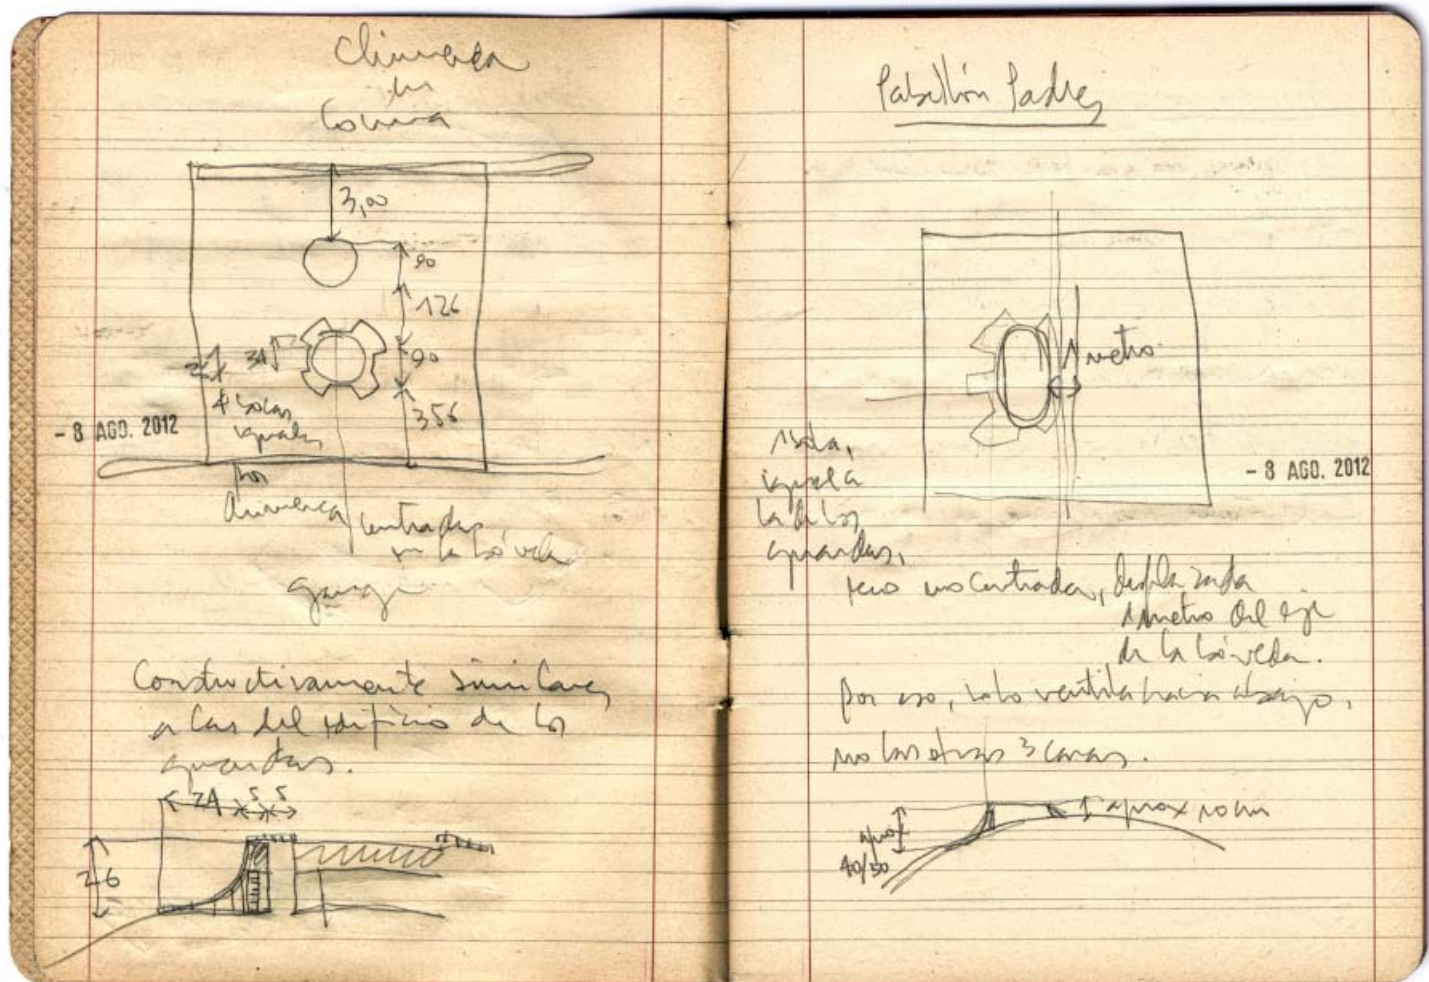 Chimenea
en
Cocina
3,00
90
126
34
90
356
4 bocas
iguales
- 8 AGO. 2012
por
chimenea
centradas
en la bóveda
Constructivamente similares
a las del edificio de los
guardas.
24 5 5
26
Pabellón Padres
1 metro
1 sola,
igual a
la de los
guardas,
- 8 AGO. 2012
pero no centrada, desplazada
1 metro del eje
de la bóveda.
por eso, solo ventila hacia abajo,
no las otras 3 caras.
aprox 10 cm
aprox
40/50